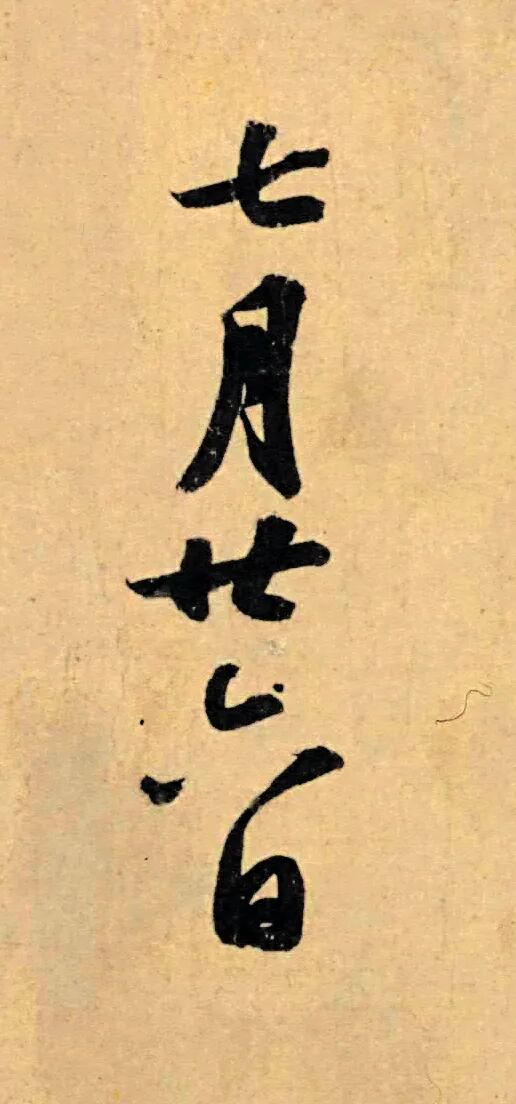 七月廿六日